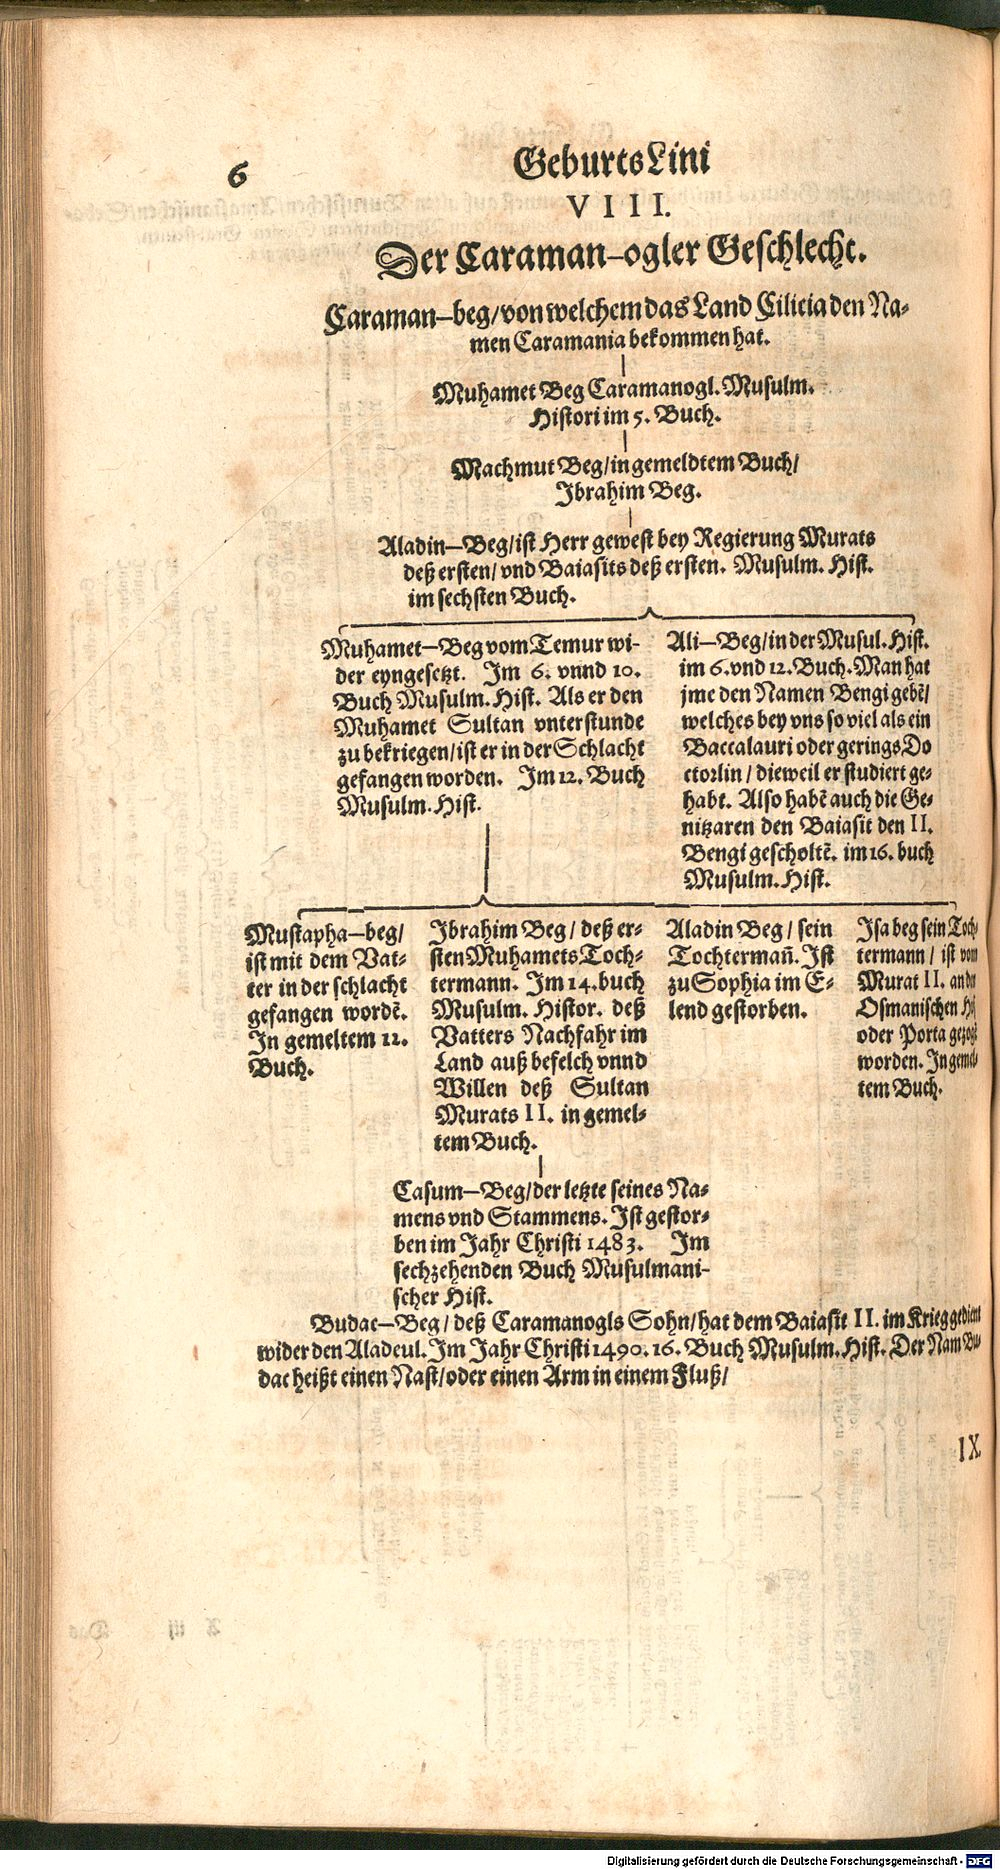 6
GeburtsLini
VIII.
Der Caraman-ogler Geschlecht.
Caraman-beg/ von welchem das Land Cilicia den Na-
men Caramania bekommen hat.
Muhamet Beg Caramanogl. Musulm.
Histori im 5. Buch.
Machmut Beg/ in gemeldtem Buch/
Ibrahim Beg.
Aladin-Beg/ ist Herr gewest bey Regierung Murats
deß ersten/ vnd Baiasits deß ersten. Musulm. Hist.
im sechsten Buch.
Muhamet-Beg vom Temur wi-
der eyngesetzt. Im 6. vnnd 10.
Buch Musulm. Hist. Als er den
Muhamet Sultan vnterstunde
zu bekriegen/ ist er in der Schlacht
gefangen worden. Im 12. Buch
Musulm. Hist.
Ali-Beg/ in der Musul. Hist.
im 6. vnd 12. Buch. Man hat
jme den Namen Bengi gebẽ/
welches bey vns so viel als ein
Baccalauri oder gerings Do
ctorlin/ dieweil er studiert ge-
habt. Also habẽ auch die Ge-
nitzaren den Baiasit den II.
Bengi gescholtẽ. im 16. buch
Musulm. Hist.
Mustapha-beg/
ist mit dem Vat-
ter in der schlacht
gefangen wordẽ.
In gemeltem 12.
Buch.
Ibrahim Beg/ deß er-
sten Muhamets Toch-
termann. Im 14. buch
Musulm. Histor. deß
Vatters Nachfahr im
Land auß befelch vnnd
Willen deß Sultan
Murats II. in gemel-
tem Buch.
Aladin Beg/ sein
Tochtermañ. Ist
zu Sophia im E-
lend gestorben.
Isa beg sein Toch-
termann/ ist vom
Murat II. an den
Osmanischen
oder Porta gezogẽ
worden. In gemel-
tem Buch.
Casum-Beg/ der letzte seines Na-
mens vnd Stammens. Ist gestor-
ben im Jahr Christi 1483. Im
sechzehenden Buch Musulmani-
scher Hist.
Budac-Beg/ deß Caramanogls Sohn/ hat dem Baiasit II. im Krieg gedient
wider den Aladeul. Im Jahr Christi 1490. 16. Buch Musulm. Hist. Der Nam Bu-
dac heißt einen Nast/ oder einen Arm in einem Fluß/
IX.
Digitalisierung gefördert durch die Deutsche Forschungsgemeinschaft - DFG